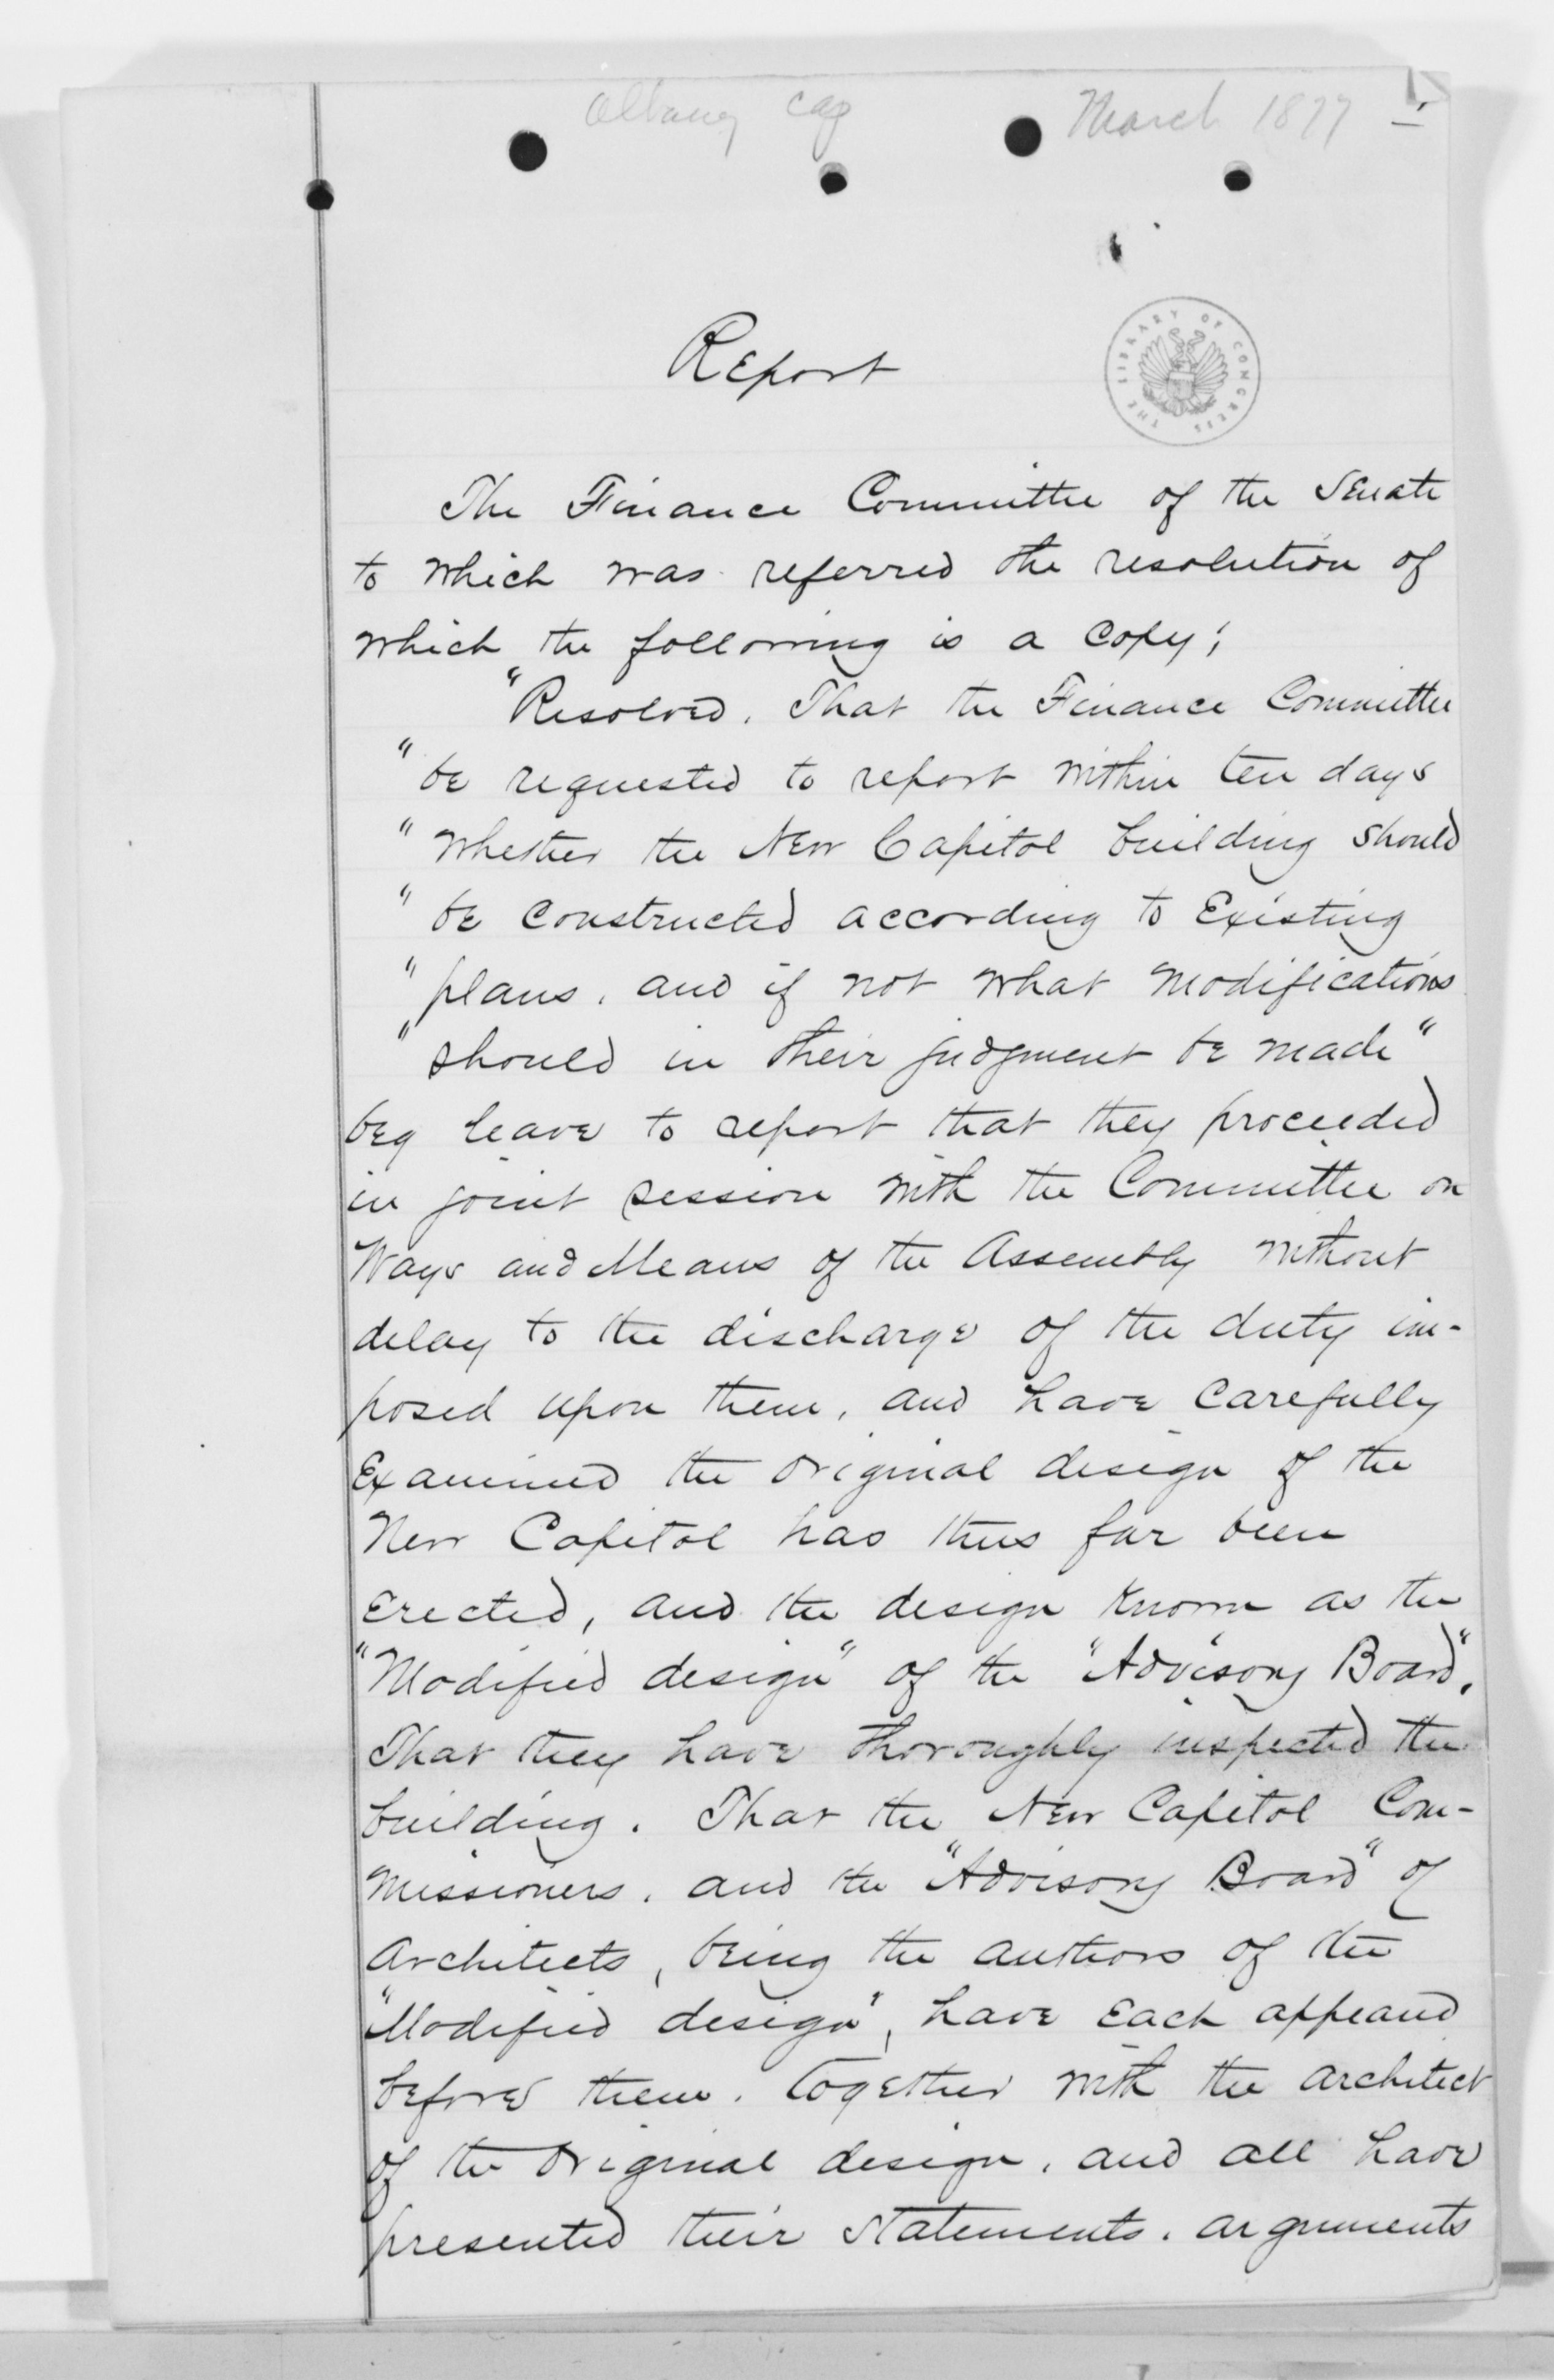 Albany Cap March 1877 1.
Report
THE LIBRARY OF CONGRESS
The Finance Committee of the Senate
to which was referred the resolution of
which the following is a copy;
"Resolved, That the Finance Committee
"be requested to report within ten days
"whether the New Capitol building should
"be constructed according to Existing
"plans, and if not what modifications
"should in their judgment be made"
beg leave to report that they proceeded
in joint session with the Committee on
Ways and Means of the Assembly without
delay to the discharge of the duty im-
posed upon them, and have carefully
Examined the original design of the
New Capitol has thus far been
Erected, and the design known as the
"Modified design" of the "Advisory Board".
That they have thoroughly inspected the
building. That the New Capitol Com-
missioners, and the "Advisory Board" of
Architects, being the authors of the
"Modified design", have Each appeared
before them, together with the architect
of the original design, and all have
presented their statements, arguments